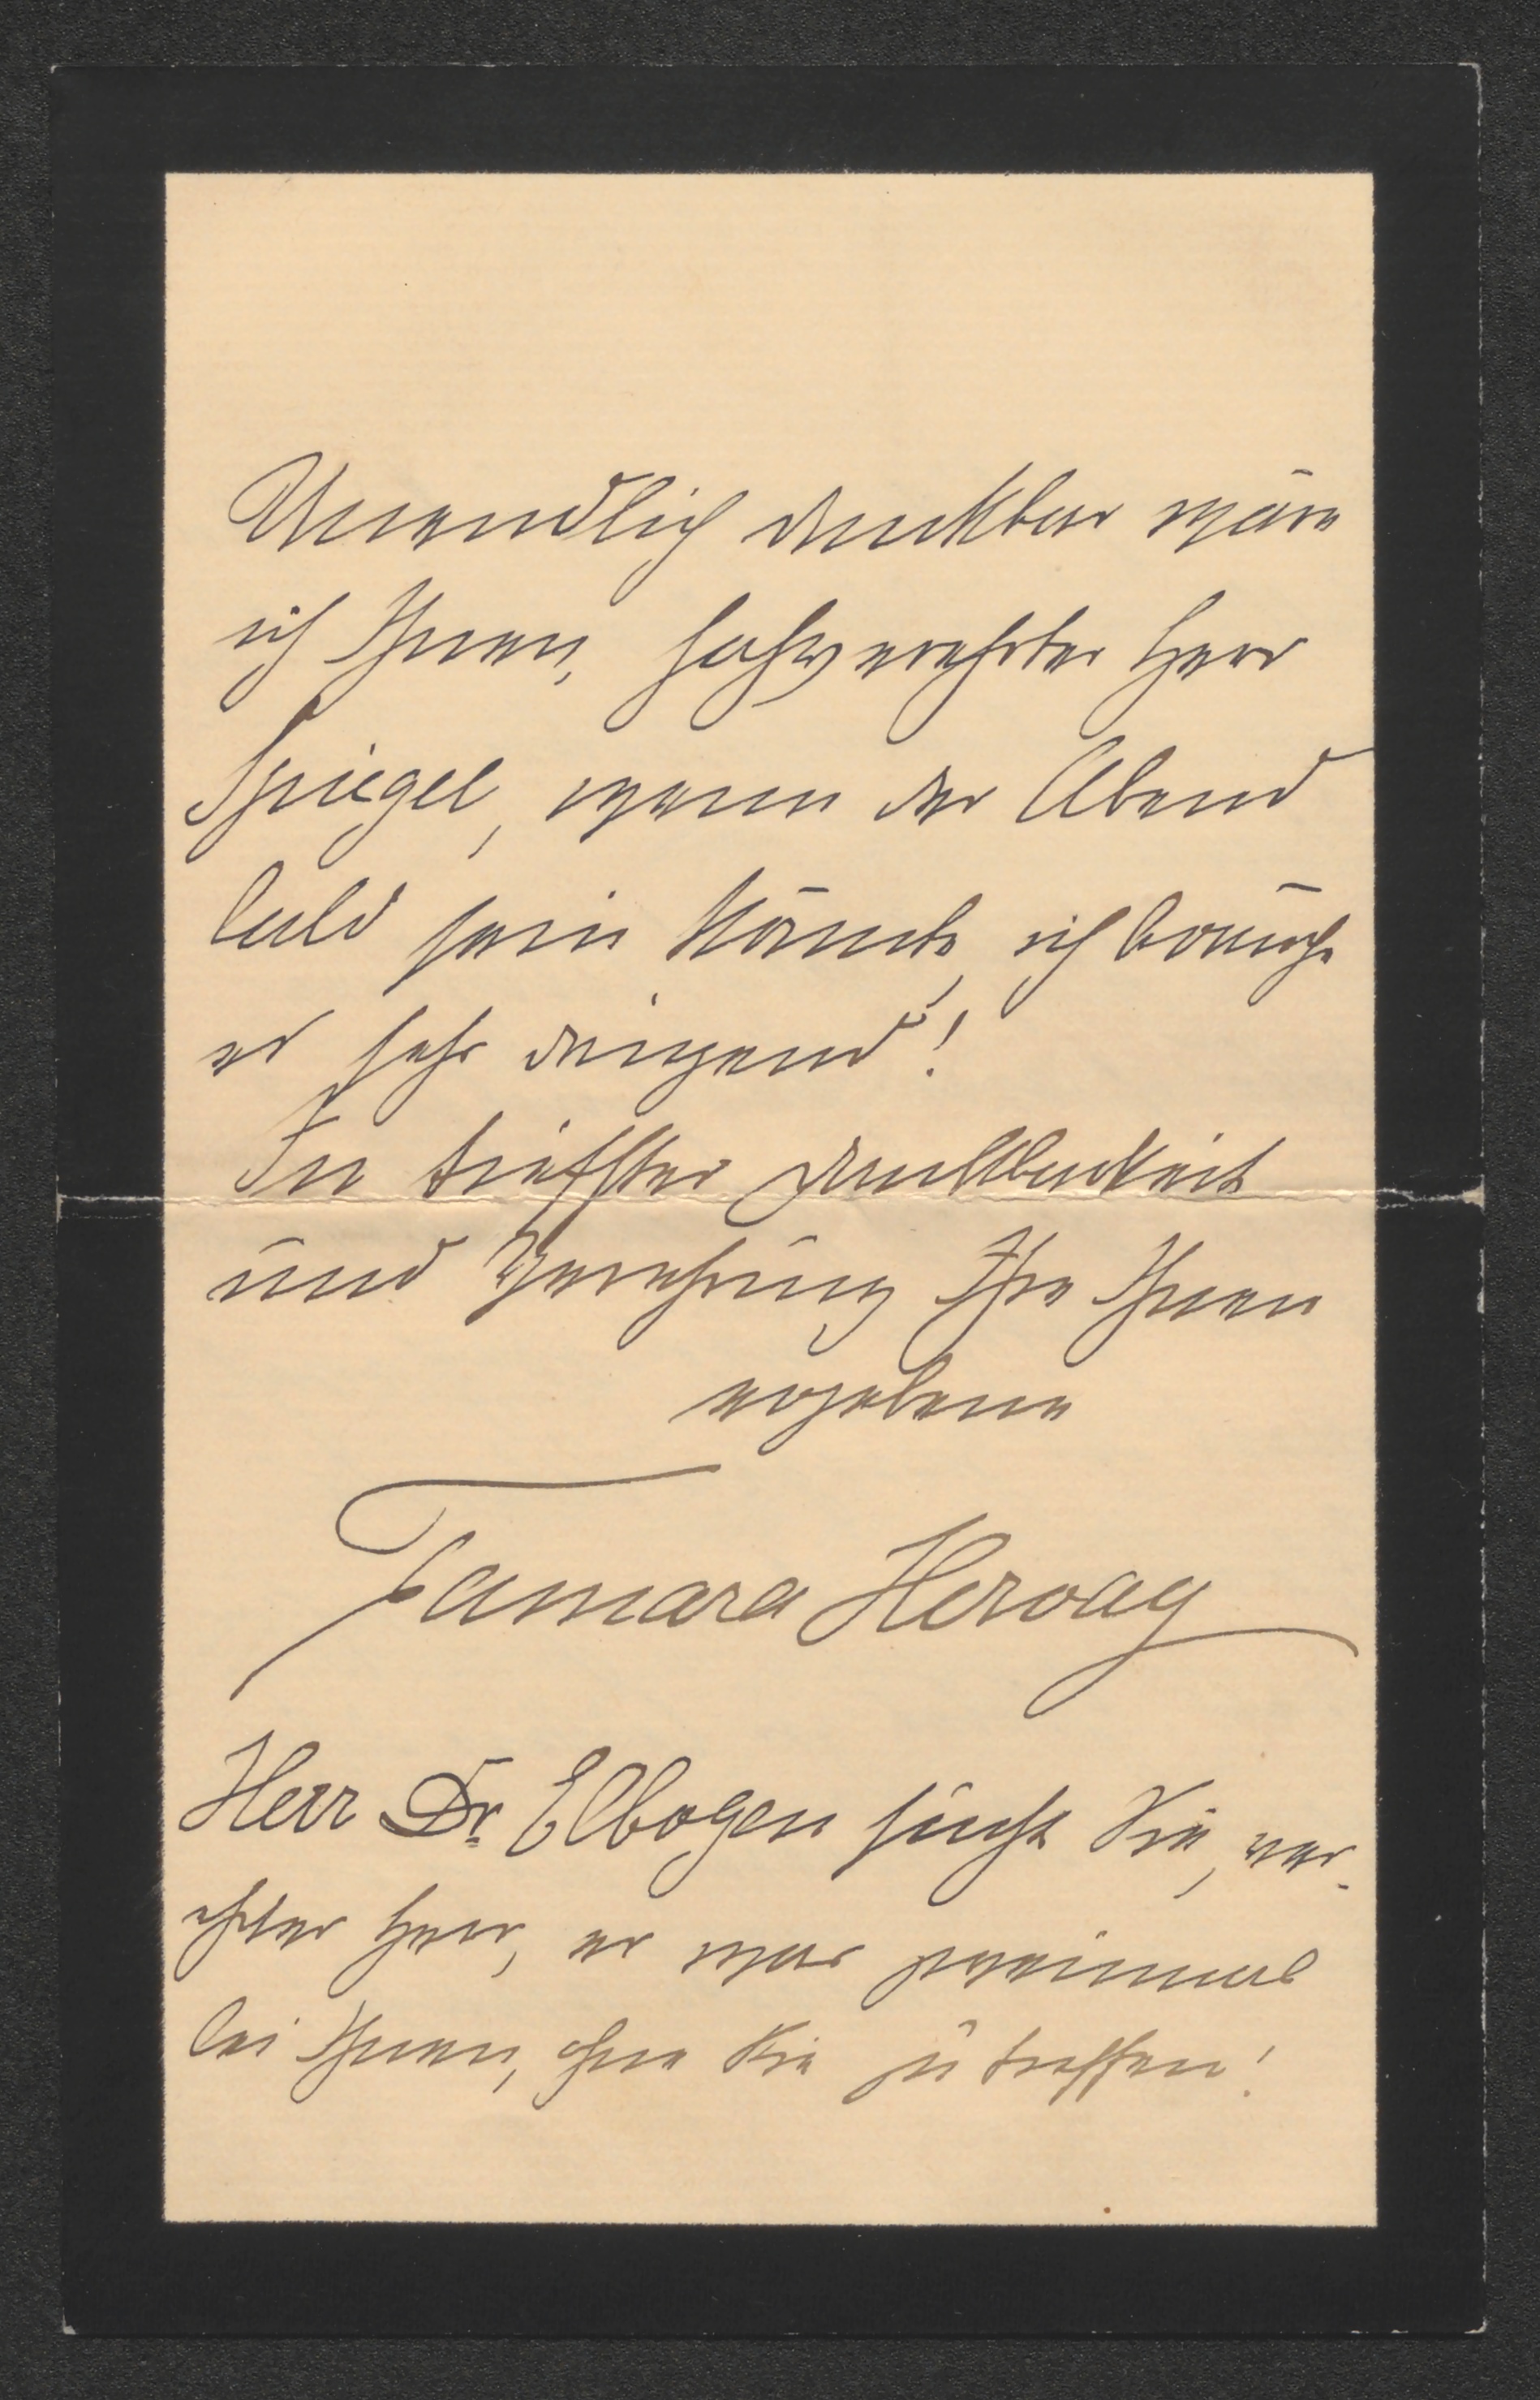 Unendlich dankbar wäre
ich Ihnen, hochverehrter Herr
Spiegel, wenn der Abend
bald sein könnte, ich brauche
es sehr dringend!
In tiefster Dankbarkeit
und Verehrung Ihre Ihnen
ergebene
Tamara Hervay
Herr Dr. Elbogen sucht Sie, ver-
ehrter Herr, er war zweimal
bei Ihnen, ohne Sie zu treffen!